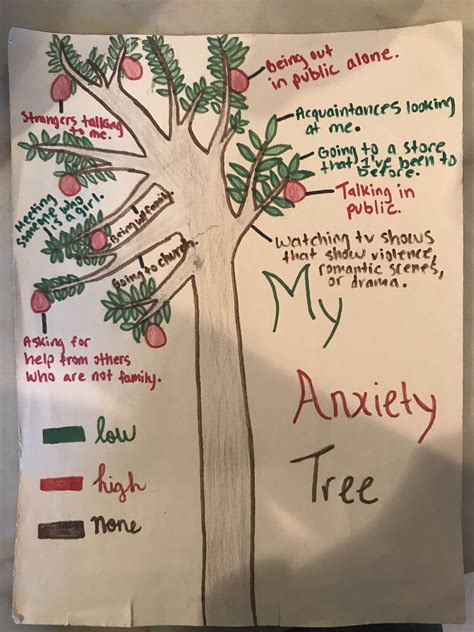 Being out
in public alone.
Strangers talking
to me.
Acquaintances looking
at me.
Going to a store
that I've been to
before.
Meeting
someone who
is a girl.
Talking in
public.
Being w/ family.
Watching tv shows
that show violence,
romantic scenes,
or drama.
Going to church.
Asking for
help from others
who are not family.
My
Anxiety
Tree
low
high
none